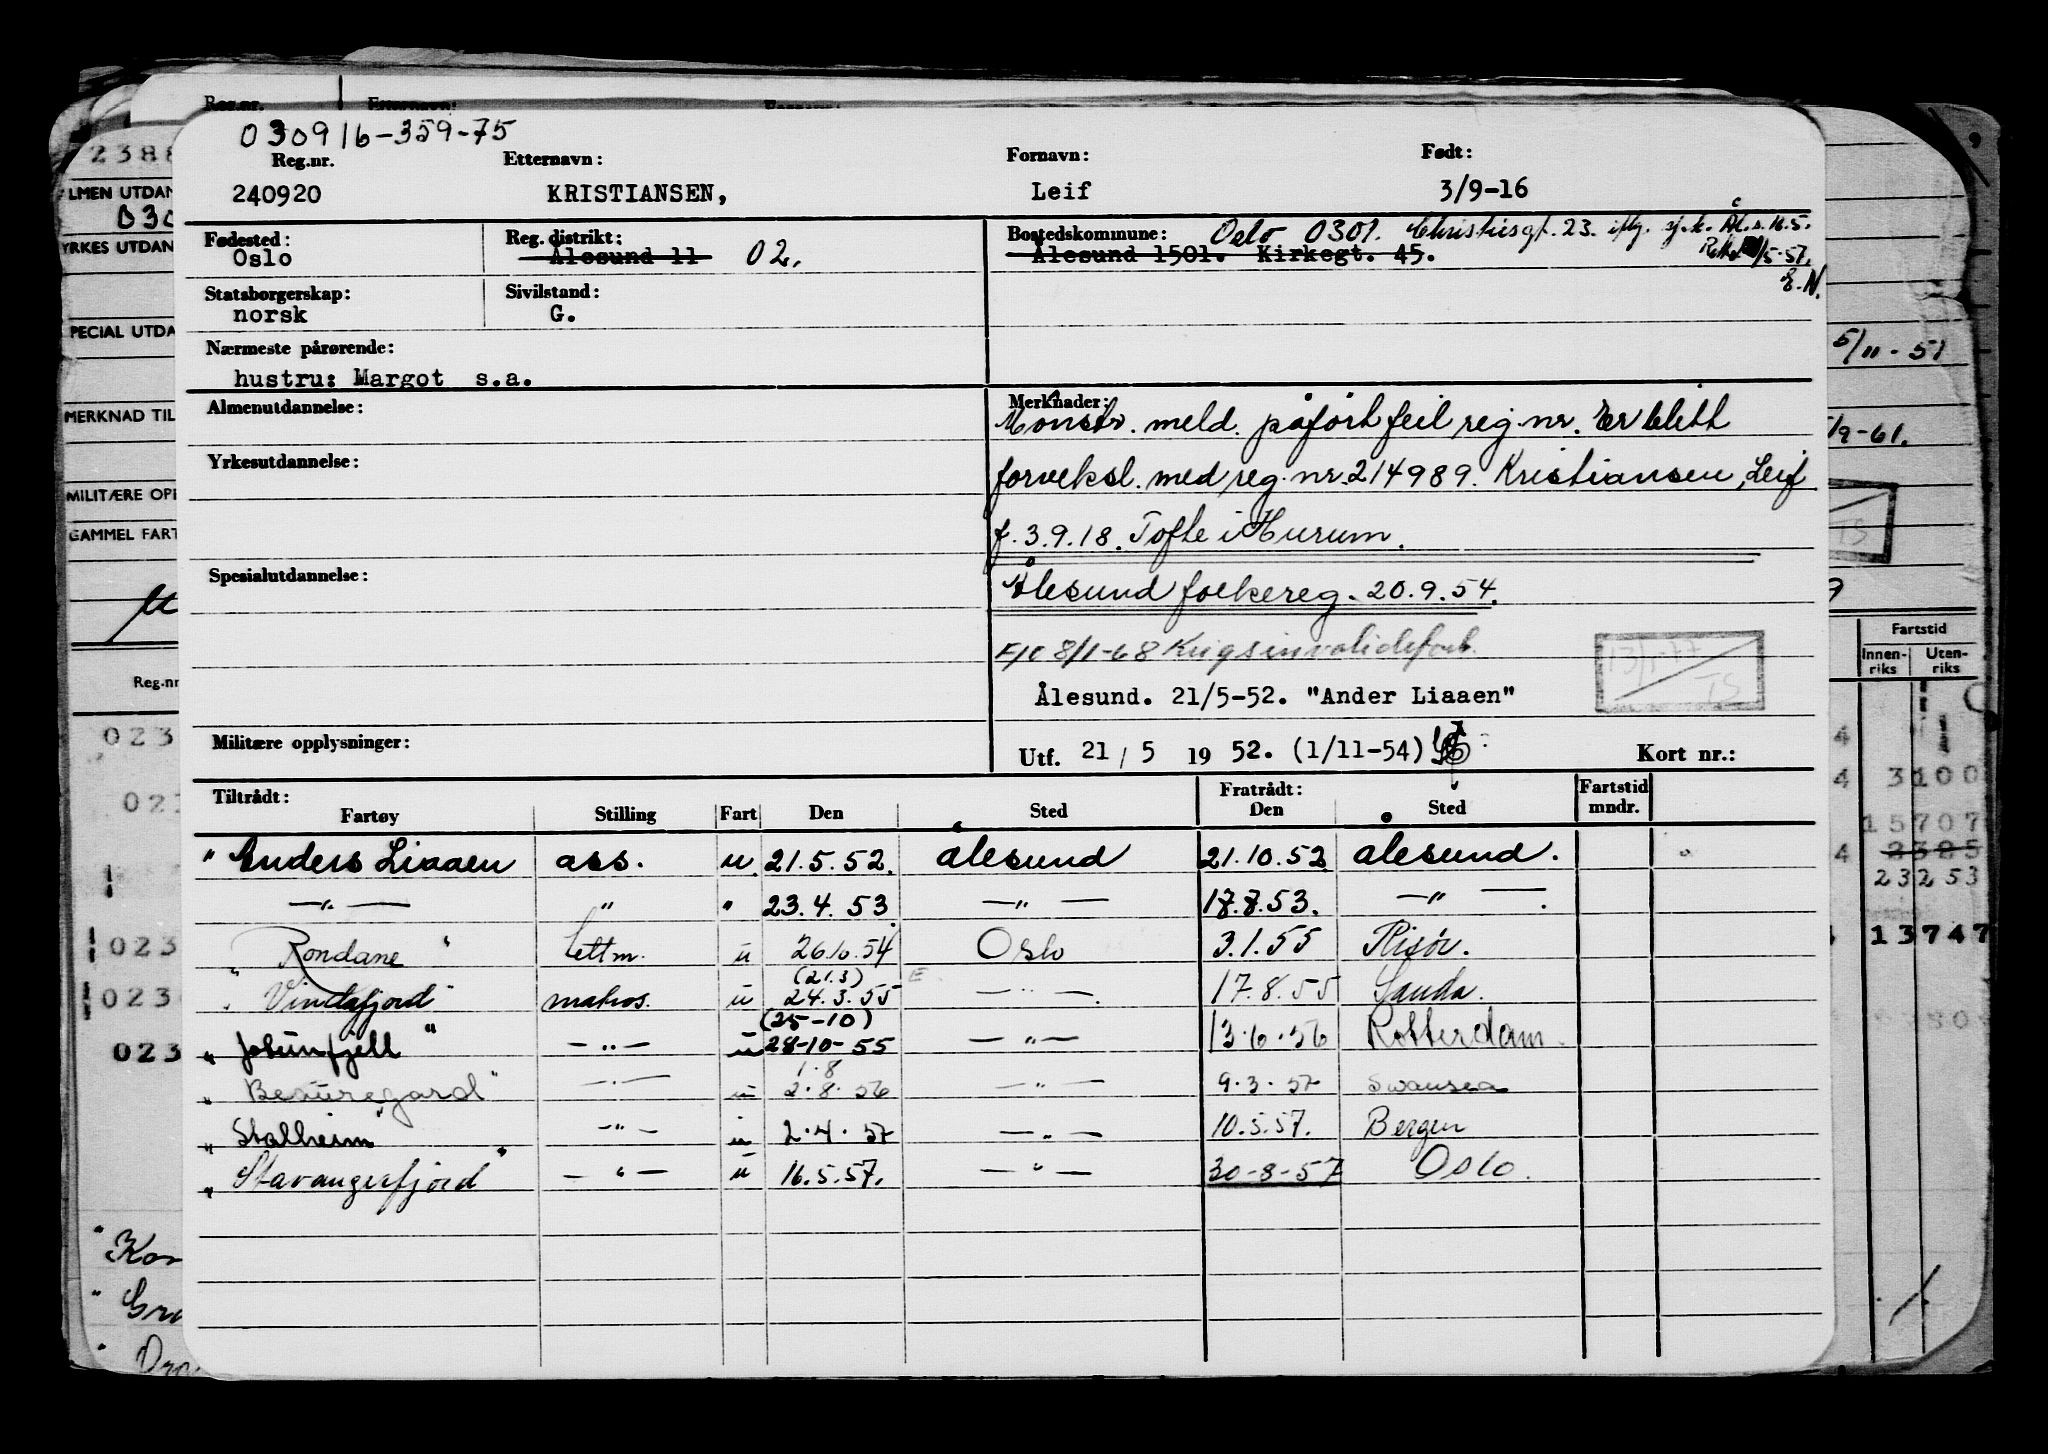 030916-359-75
Reg.nr. Etternavn: Fornavn: Født:
240920 KRISTIANSEN, Leif 3/9-16
Fødested: Reg. distrikt: Bostedskommune: Oslo 0301. Christiesgt. 23. iflg. sj.k. Ål.s. 16.5.
Oslo Ålesund 11 02. Ålesund 1501. Kirkegt. 45. /5-57.
E.N.
Statsborgerskap: Sivilstand:
norsk G.
Nærmeste pårørende:
hustru: Margot s.a.
Almenutdannelse: Merknader:
Mønstr. meld. påført feil reg.nr. Er blitt
Yrkesutdannelse:
forveksl. med reg.nr. 214989. Kristiansen, Leif
f. 3.9.18. Tofte i Hurum.
Spesialutdannelse:
Ålesund folkereg. 20.9.54.
8/1-68 Krigsinvalideforb.
13/1-77
TS
Ålesund. 21/5-52. "Ander Liaaen"
Militære opplysninger:
Utf. 21/5 1952. (1/11-54) Kort nr.:
Tiltrådt: Fratrådt: Fartstid
Fartøy Stilling Fart Den Sted Den Sted mndr.
" Anders Liaaen ass. u. 21.5.52. Ålesund 21.10.52 Ålesund.
—"— " " 23.4.53 —"— 17.8.53. —"—.
" Rondane " lettm. u 26.10.54 Oslo 3.1.55 Risör.
(21.3) E
" Vindafjord " matros. u 24.3.55 —"—. 17.8.55 Sauda.
(25-10)
" Jotunfjell " —"— u 28-10-55 —"— 13.6.56 Rotterdam.
1.8
" Beauregard " —"— u 2.8.56 —"— 9.3.57 Swansea
" Stalheim " —"— u 2.4.57 —"— 10.5.57. Bergen
" Stavangerfjord " —"— u 16.5.57. —"— 30-8-57 Oslo.
Reg.nr. Etternavn:
2388
LMEN UTDAN
030
YRKES UTDAN
PECIAL UTDA
MERKNAD TIL
MILITÆRE OPP
GAMMEL FART
Reg.nr
023
023
023
023
023
" Kon
" Gra
"
5/11-51
/9-61.
TS
Fartstid
Innen- Uten-
riks riks
4
4 3100
15707
4 2385
23253
13747